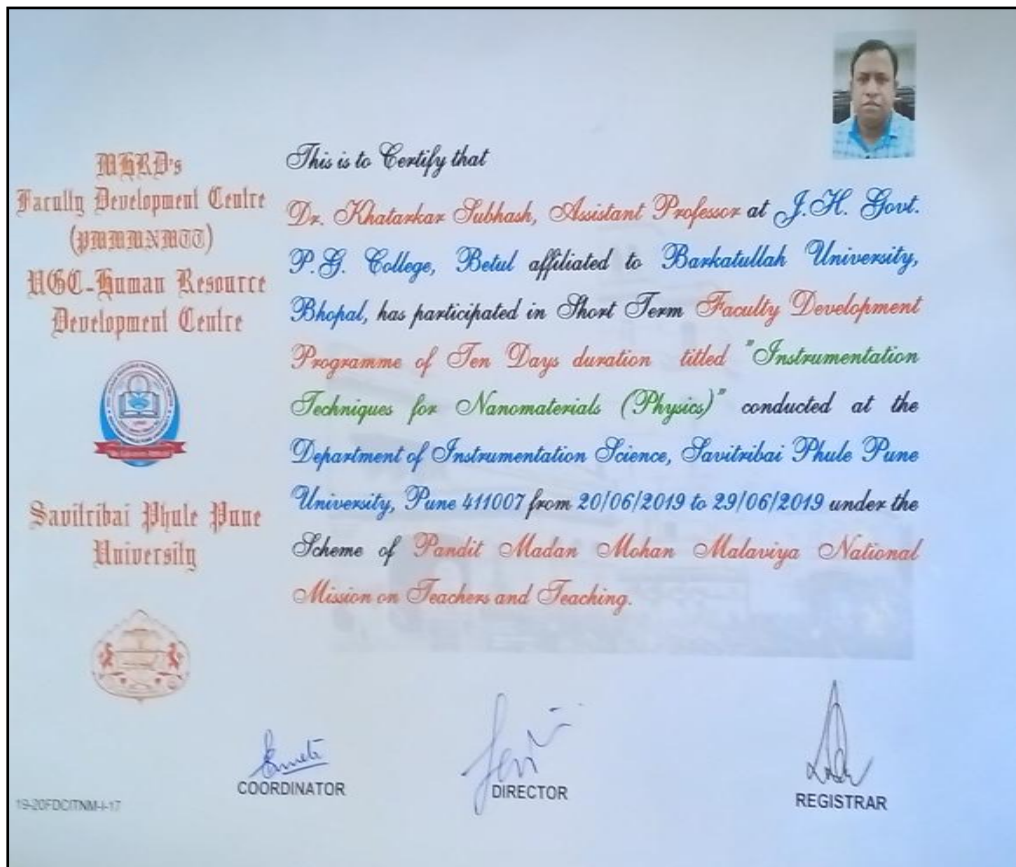 MHRD's
Faculty Development Centre
(PMMMNMTT)
UGC-Human Resource
Development Centre
Savitribai Phule Pune
University
This is to Certify that
Dr. Khatarkar Subhash, Assistant Professor at J.H. Govt.
P.G. College, Betul affiliated to Barkatullah University,
Bhopal, has participated in Short Term Faculty Development
Programme of Ten Days duration titled "Instrumentation
Techniques for Nanomaterials (Physics)" conducted at the
Department of Instrumentation Science, Savitribai Phule Pune
University, Pune 411007 from 20/06/2019 to 29/06/2019 under the
Scheme of Pandit Madan Mohan Malaviya National
Mission on Teachers and Teaching.
COORDINATOR
DIRECTOR
REGISTRAR
19-20FDCITNM-I-17